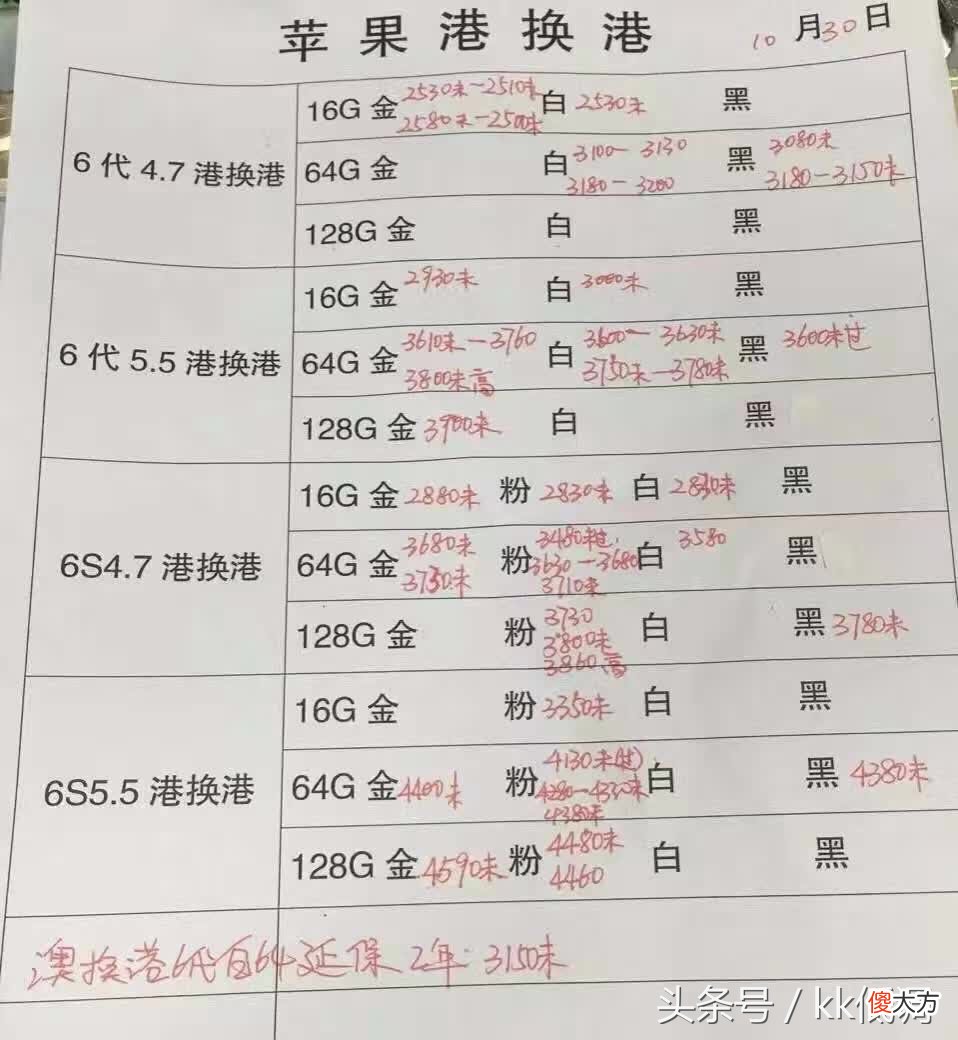 苹果港换港 10月30日
6代4.7港换港
16G 金 2530未-2510未 2580未-2500未 白 2530未 黑
64G 金 白 3100-3130 3180-3200 黑 3080未 3180-3150未
128G 金 白 黑
6代5.5港换港
16G 金 2930未 白 3000未 黑
64G 金 3610未-3760 3800未高 白 3600-3630未 3750未-3780未 黑 3600未过
128G 金 3900未 白 黑
6S4.7港换港
16G 金 2880未 粉 2830未 白 2830未 黑
64G 金 3680未 3730未 粉 3480未过 3630-3680 3710未 白 3580 黑
128G 金 粉 3730 3800未 3860高 白 黑 3780未
6S5.5港换港
16G 金 粉 3350未 白 黑
64G 金 4400未 粉 4130未(过) 4280-4330未 4380未 白 黑 4380未
128G 金 4590未 粉 4480未 4460 白 黑
澳换港6代白64延保2年:3150未
头条号 / kk低
傻大方